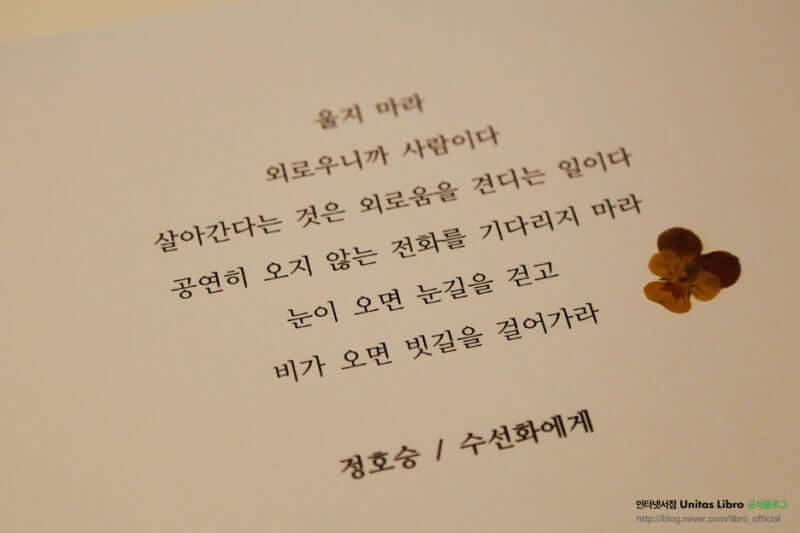 울지 마라
외로우니까 사람이다
살아간다는 것은 외로움을 견디는 일이다
공연히 오지 않는 전화를 기다리지 마라
눈이 오면 눈길을 걷고
비가 오면 빗길을 걸어가라
정호승 / 수선화에게
인터넷서점 Unitas Libro 공식블로그
http://blog.naver.com/libro_official